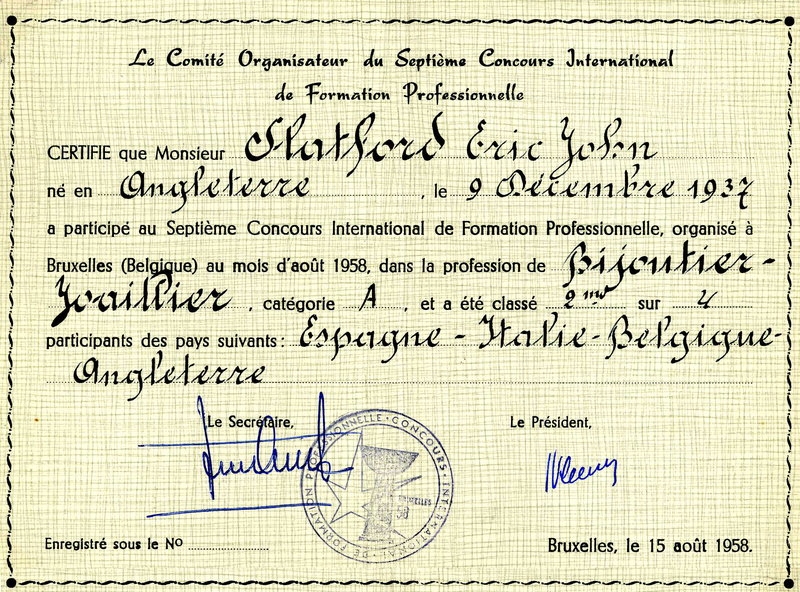 Le Comité Organisateur du Septième Concours International
de Formation Professionnelle
CERTIFIE que Monsieur Flatford Eric John
né en Angleterre, le 9 Décembre 1937
a participé au Septième Concours International de Formation Professionnelle, organisé à
Bruxelles (Belgique) au mois d'août 1958, dans la profession de Bijoutier-
Joaillier, catégorie A, et a été classé 2me sur 4
participants des pays suivants: Espagne - Italie - Belgique -
Angleterre
Le Secrétaire, Le Président,
FORMATION PROFESSIONNELLE · CONCOURS · INTERNATIONAL DE
BRUXELLES
58
Enregistré sous le No
Bruxelles, le 15 août 1958.